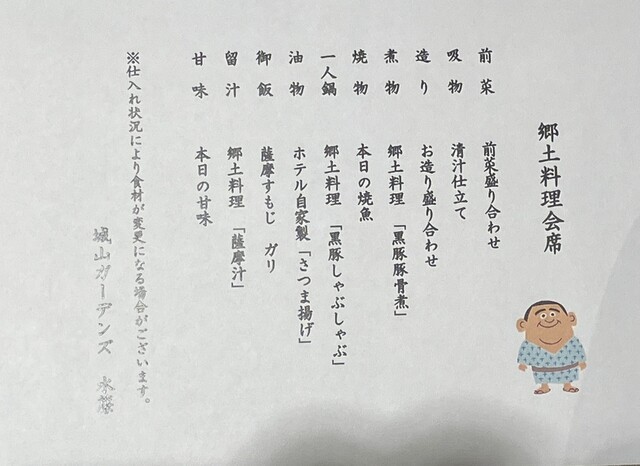 郷土料理会席
前菜　前菜盛り合わせ
吸物　清汁仕立て
造り　お造り盛り合わせ
煮物　郷土料理　「黒豚豚骨煮」
焼物　本日の焼魚
一人鍋　郷土料理　「黒豚しゃぶしゃぶ」
油物　ホテル自家製「さつま揚げ」
御飯　薩摩すもじ　ガリ
留汁　郷土料理　「薩摩汁」
甘味　本日の甘味
※仕入れ状況により食材が変更になる場合がございます。
城山ガーデンズ